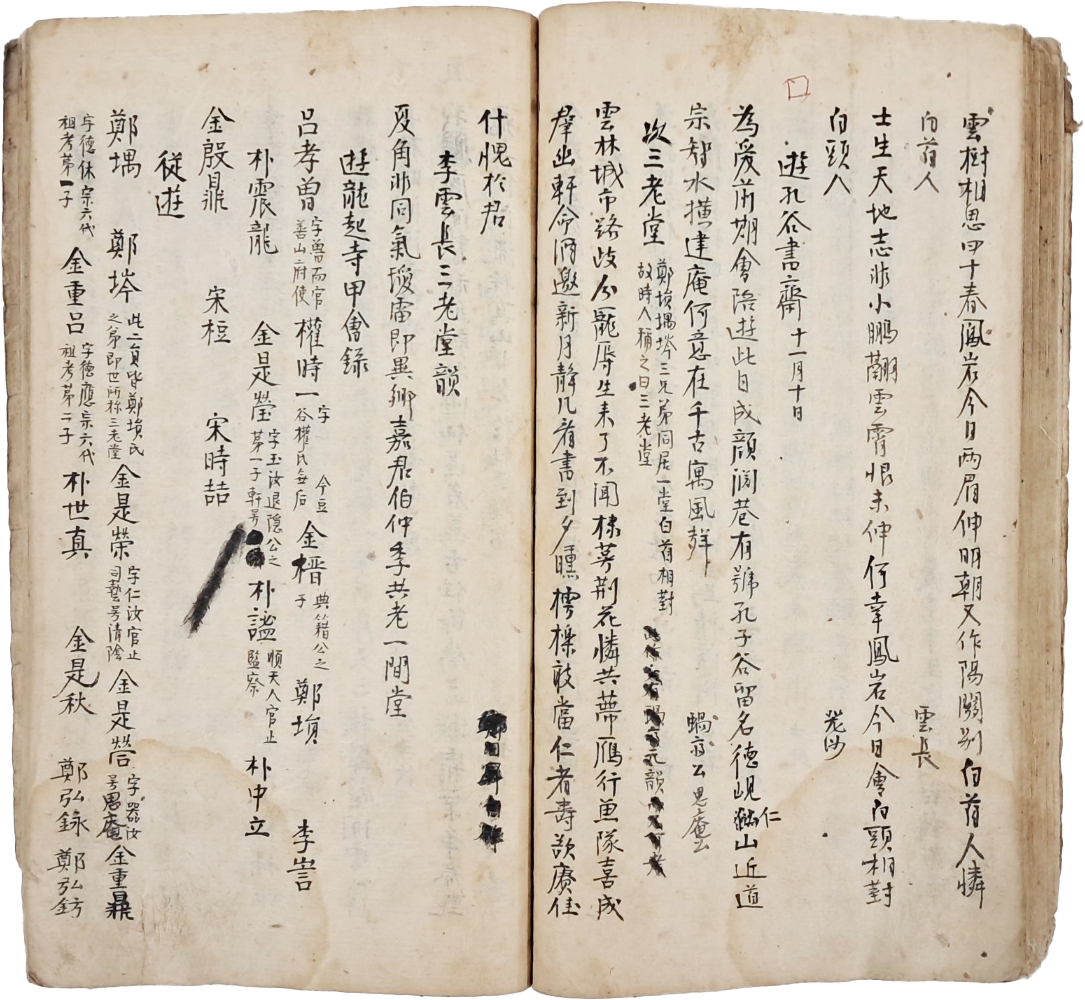 雲樹相思四十春鳳岩今日兩眉伸明朝又作陽關別白首人憐
白首人 雲長
士生天地志非小鵬翮雲霄恨未伸何幸鳳岩今日會白頭相對
白頭人
遊孔谷書齋 十一月十日
為愛前期會陪遊此日成顔澗巷有號孔子谷留名德峴仁山近道
宗智水橫建庵何意在千古寓風聲
次三老堂 鄭塤堣埁三兄弟同居一堂白首相對
故時人稱之曰三老堂 蝸衣公思庵公
雲林城市路歧分寵辱生來了不聞棣萼荆花憐共蔕鴈行魚隊喜成
羣幽軒命酒邀新月靜几看書到夕曛樗櫟敢當仁者壽歆賡佳
什愧於君
李雲長三老堂韻
夏角非同氣瓊雷即異鄉嘉君伯仲季共老一間堂
遊龍起寺甲會錄
呂孝曾 字魯而官
善山府使 權時一 字
谷權氏每后 今豆 金榗 典籍公之
子 鄭塤 李嵤
朴震龍 金是瑩 字玉汝退隱公之
第一子軒号 朴謐 順天人官止
監察 朴中立
金殷鼎 宋桓 宋時喆
從遊
鄭堣 鄭埁 此二員皆鄭塤氏
之弟即世所称三老堂 金是榮 字仁汝官止
司藝号清陰 金是㝓 字器汝
号思庵 金重鼎
字德休宗六代
祖考第一子 金重呂 字德應宗六代
祖考第二子 朴世真 金是秋 鄭弘錄 鄭弘鈁